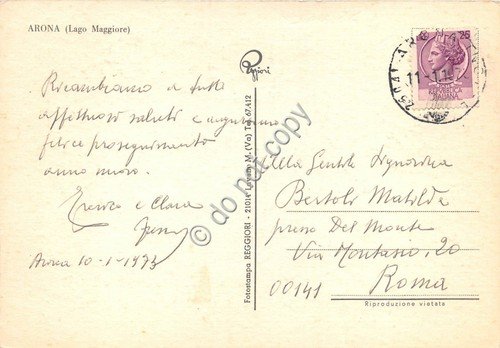 ARONA (Lago Maggiore)
Reggiori
25
REPUBBLICA
ITALIANA
ARONA
Ricambiamo a tutti
affettuosi saluti e auguriamo
felice proseguimento
anno nuovo.
Franco e Clara
Arona 10-1-1973
Fotostampa REGGIORI - 21014 Laveno M. (Va) Tel. 67.412
Alla Gentile Signorina
Bertoli Matilde
presso Del Monte
Via Montasio, 20
00141 Roma
Riproduzione vietata
© do not copy